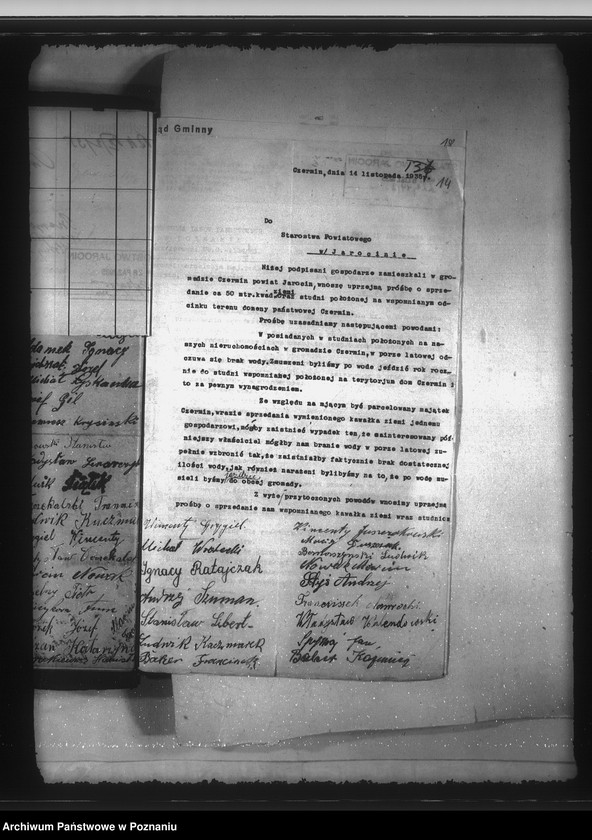 ąd Gminny
14
Czermin, dnia 14 listopada 1935r.
14
Do
Starostwa Powiatowego
w/Jarocinie
Niżej podpisani gospodarze zamieszkali w gro-
madzie Czermin powiat Jarocin, wnoszę uprzejmą prośbę o sprze-
danie ca 50 mtr.kwad. ziemi oraz studni położonej na wspomnianym od-
cinku terenu domeny państwowej Czermin.
Prośbę uzasadniamy następującemi powodami:
W posiadanych w studniach położonych na na-
szych nieruchomościach w gromadzie Czermin, w porze latowej od-
czuwa się brak wody. Zmuszeni byliśmy po wodę jeździć rok rocz-
nie do studni wspomnianej położonej na terytorjum dom Czermin i
to za pewnym wynagrodzeniem.
Ze względu na mającym być parcelowany majątek
Czermin, wrazie sprzedania wymienionego kawałka ziemi jednemu
gospodarzowi, mógby zaistnieć wypadek ten, że zainteresowany póź-
niejszy właściciel mógłby nam branie wody w porze latowej zu-
pełnie wzbronić tak, że zaistniałby faktycznie brak dostatecznej
ilości wody, jak również narażeni bylibyśmy na to, że po wodę mu-
sieli byśmy jeździć do obcej gromady.
Z wyże przytoczonych powodów wnosimy uprzejmą
prośbę o sprzedanie nam wspomnianego kawałka ziemi wraz studnią
Wincenty Grygiel
Michał
Ignacy Ratajczak
Andrzej Szuman.
Stanisław Seberl.
Ludwik Kaczmarek
Baker Franciszek
Wincenty Juszczkowski
Maciej
Ludwik
Nowak Marcin
Andrzej
Franciszek
Władysław Walendowski
Jan
Kazimierz
Ignacy
Józef
Gil
Ludwik Kaczmarek
Wincenty
Nowak
Piotr
Józef
Archiwum Państwowe w Poznaniu